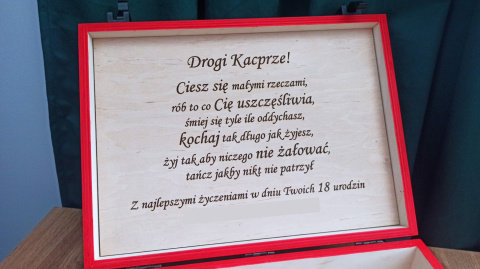 Drogi Kacprze!
Ciesz się małymi rzeczami,
rób to co Cię uszczęśliwia,
śmiej się tyle ile oddychasz,
kochaj tak długo jak żyjesz,
żyj tak aby niczego nie żałować,
tańcz jakby nikt nie patrzył
Z najlepszymi życzeniami w dniu Twoich 18 urodzin